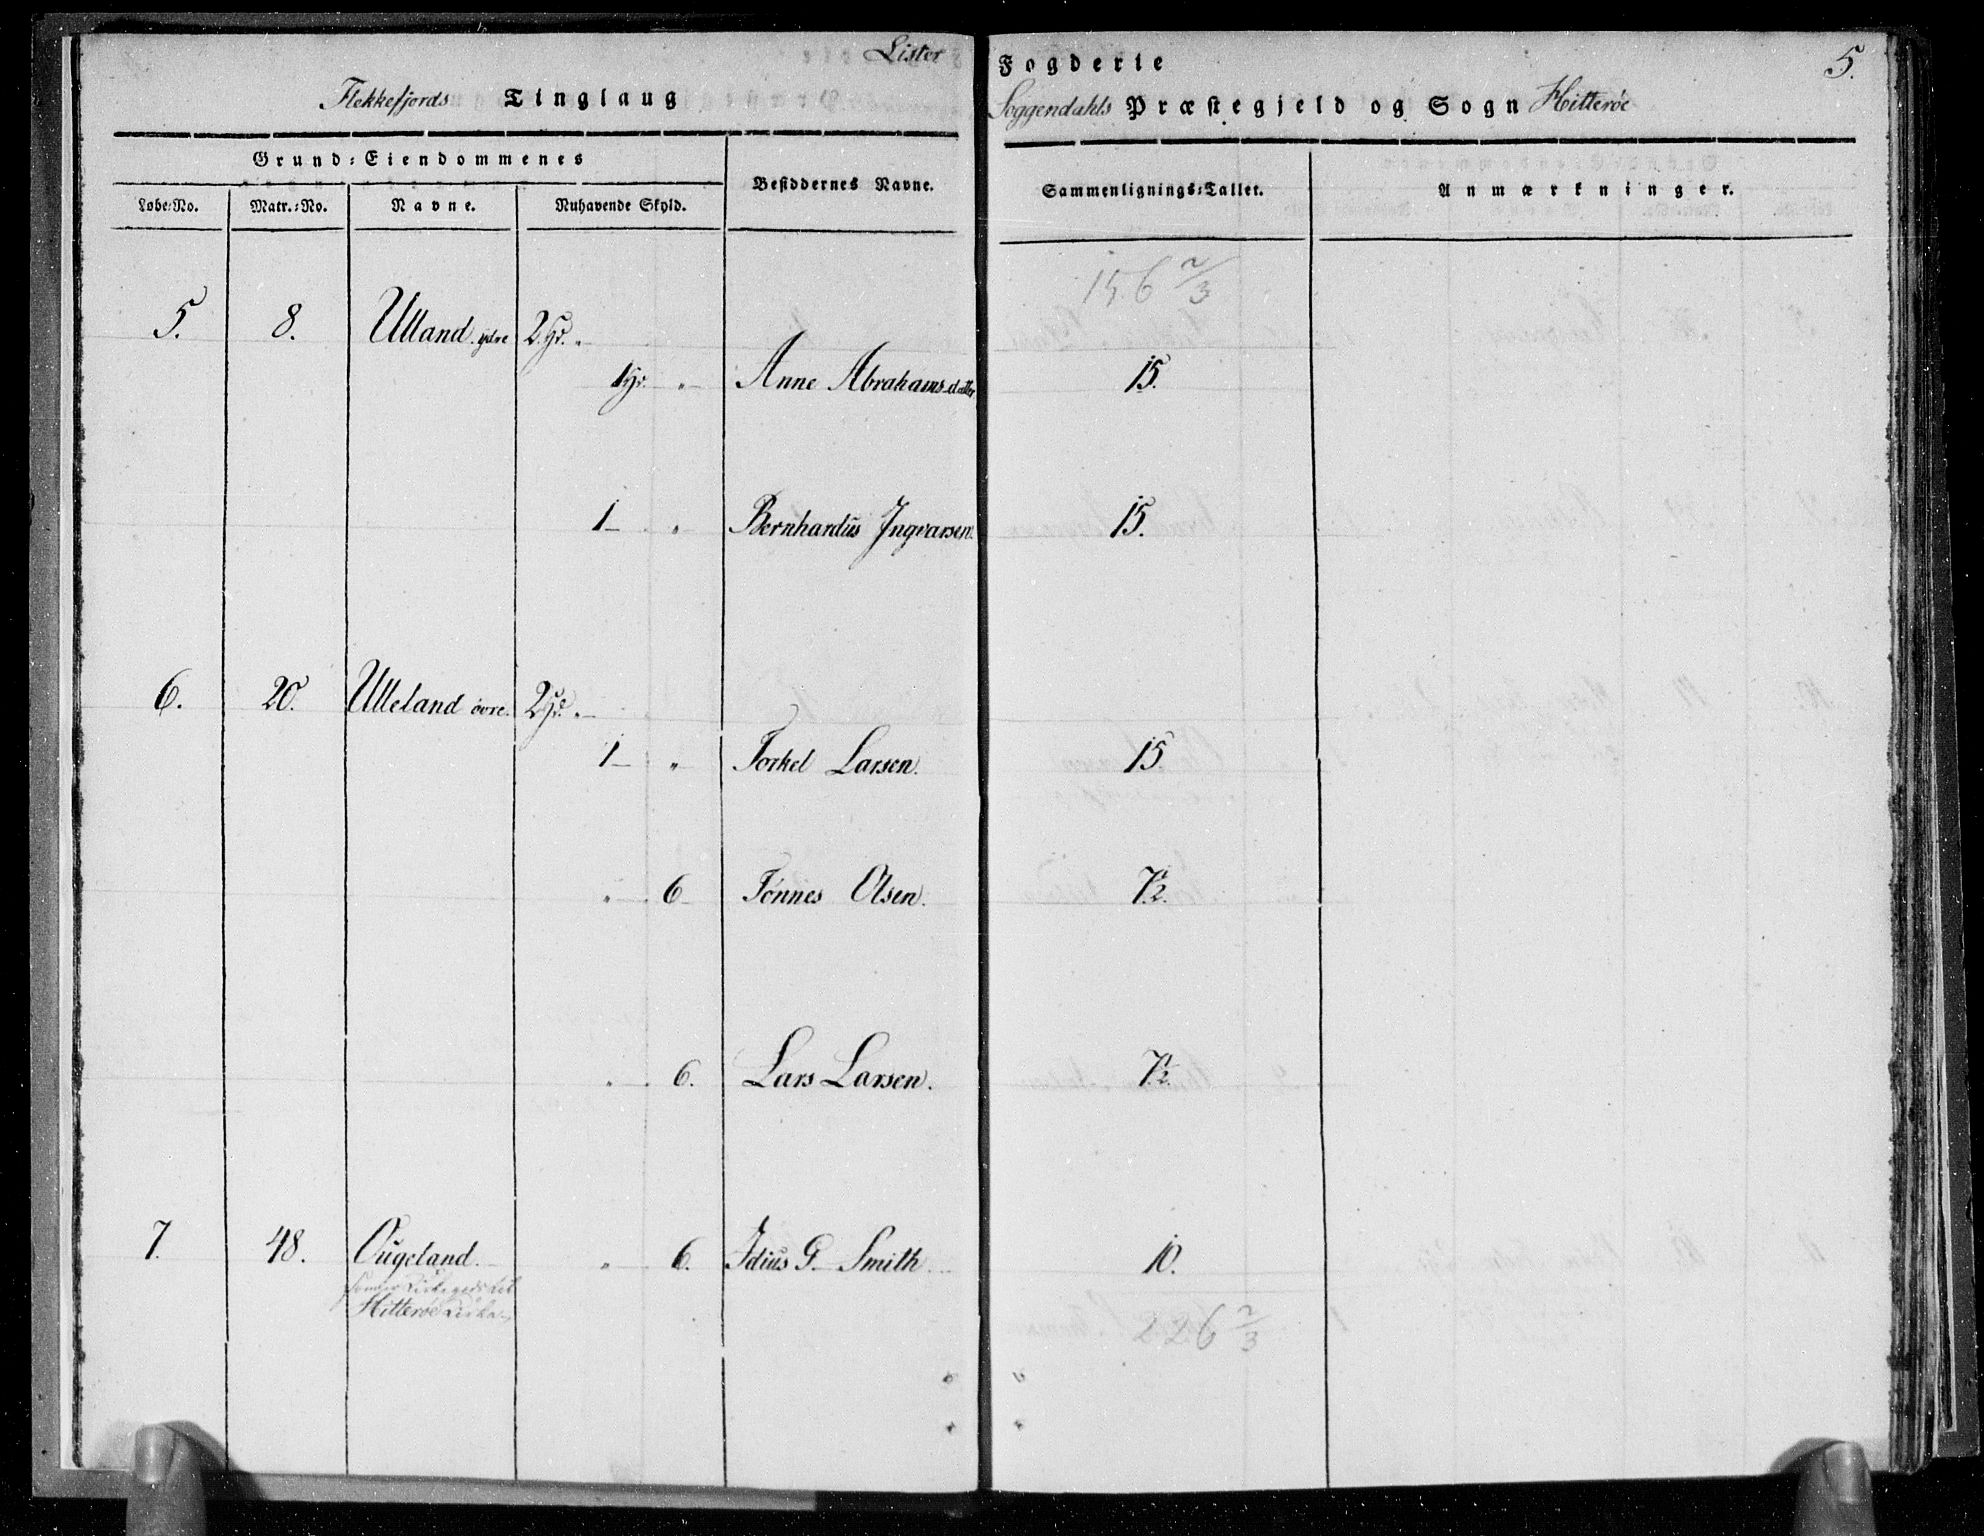 Lister Fogderie 5.
Flekkefjords Tinglaug Soggendahls Præstegjeld og Sogn Hitterøe
Grund-Eiendommenes
Besiddernes Navne. Sammenlignings-Tallet. Anmærkninger.
Løbe-No. Matr.-No. Navne. Nuhavende Skyld.
156 2/3
5. 8. Ulland ydre 2 Hr. „
1 Hr. „ Anne Abrahamsdatter 15.
1 „ Bernhardus Ingvarsen. 15.
6. 20. Ulleland øvre. 2 Hr. „
1 „ Torkel Larsen. 15
„ 6 Tønnes Olsen. 7 1/2.
„ 6. Lars Larsen. 7 1/2.
7. 48. Ougeland. „ 6. Idius G. Smith 10.
Hitterøe
226 2/3